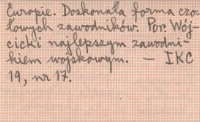 Europie. Doskonała forma czo-
łowych zawodników. Por. Wój-
cicki najlepszym zawodni-
kiem wojskowym. — IKC
19, nr 17.